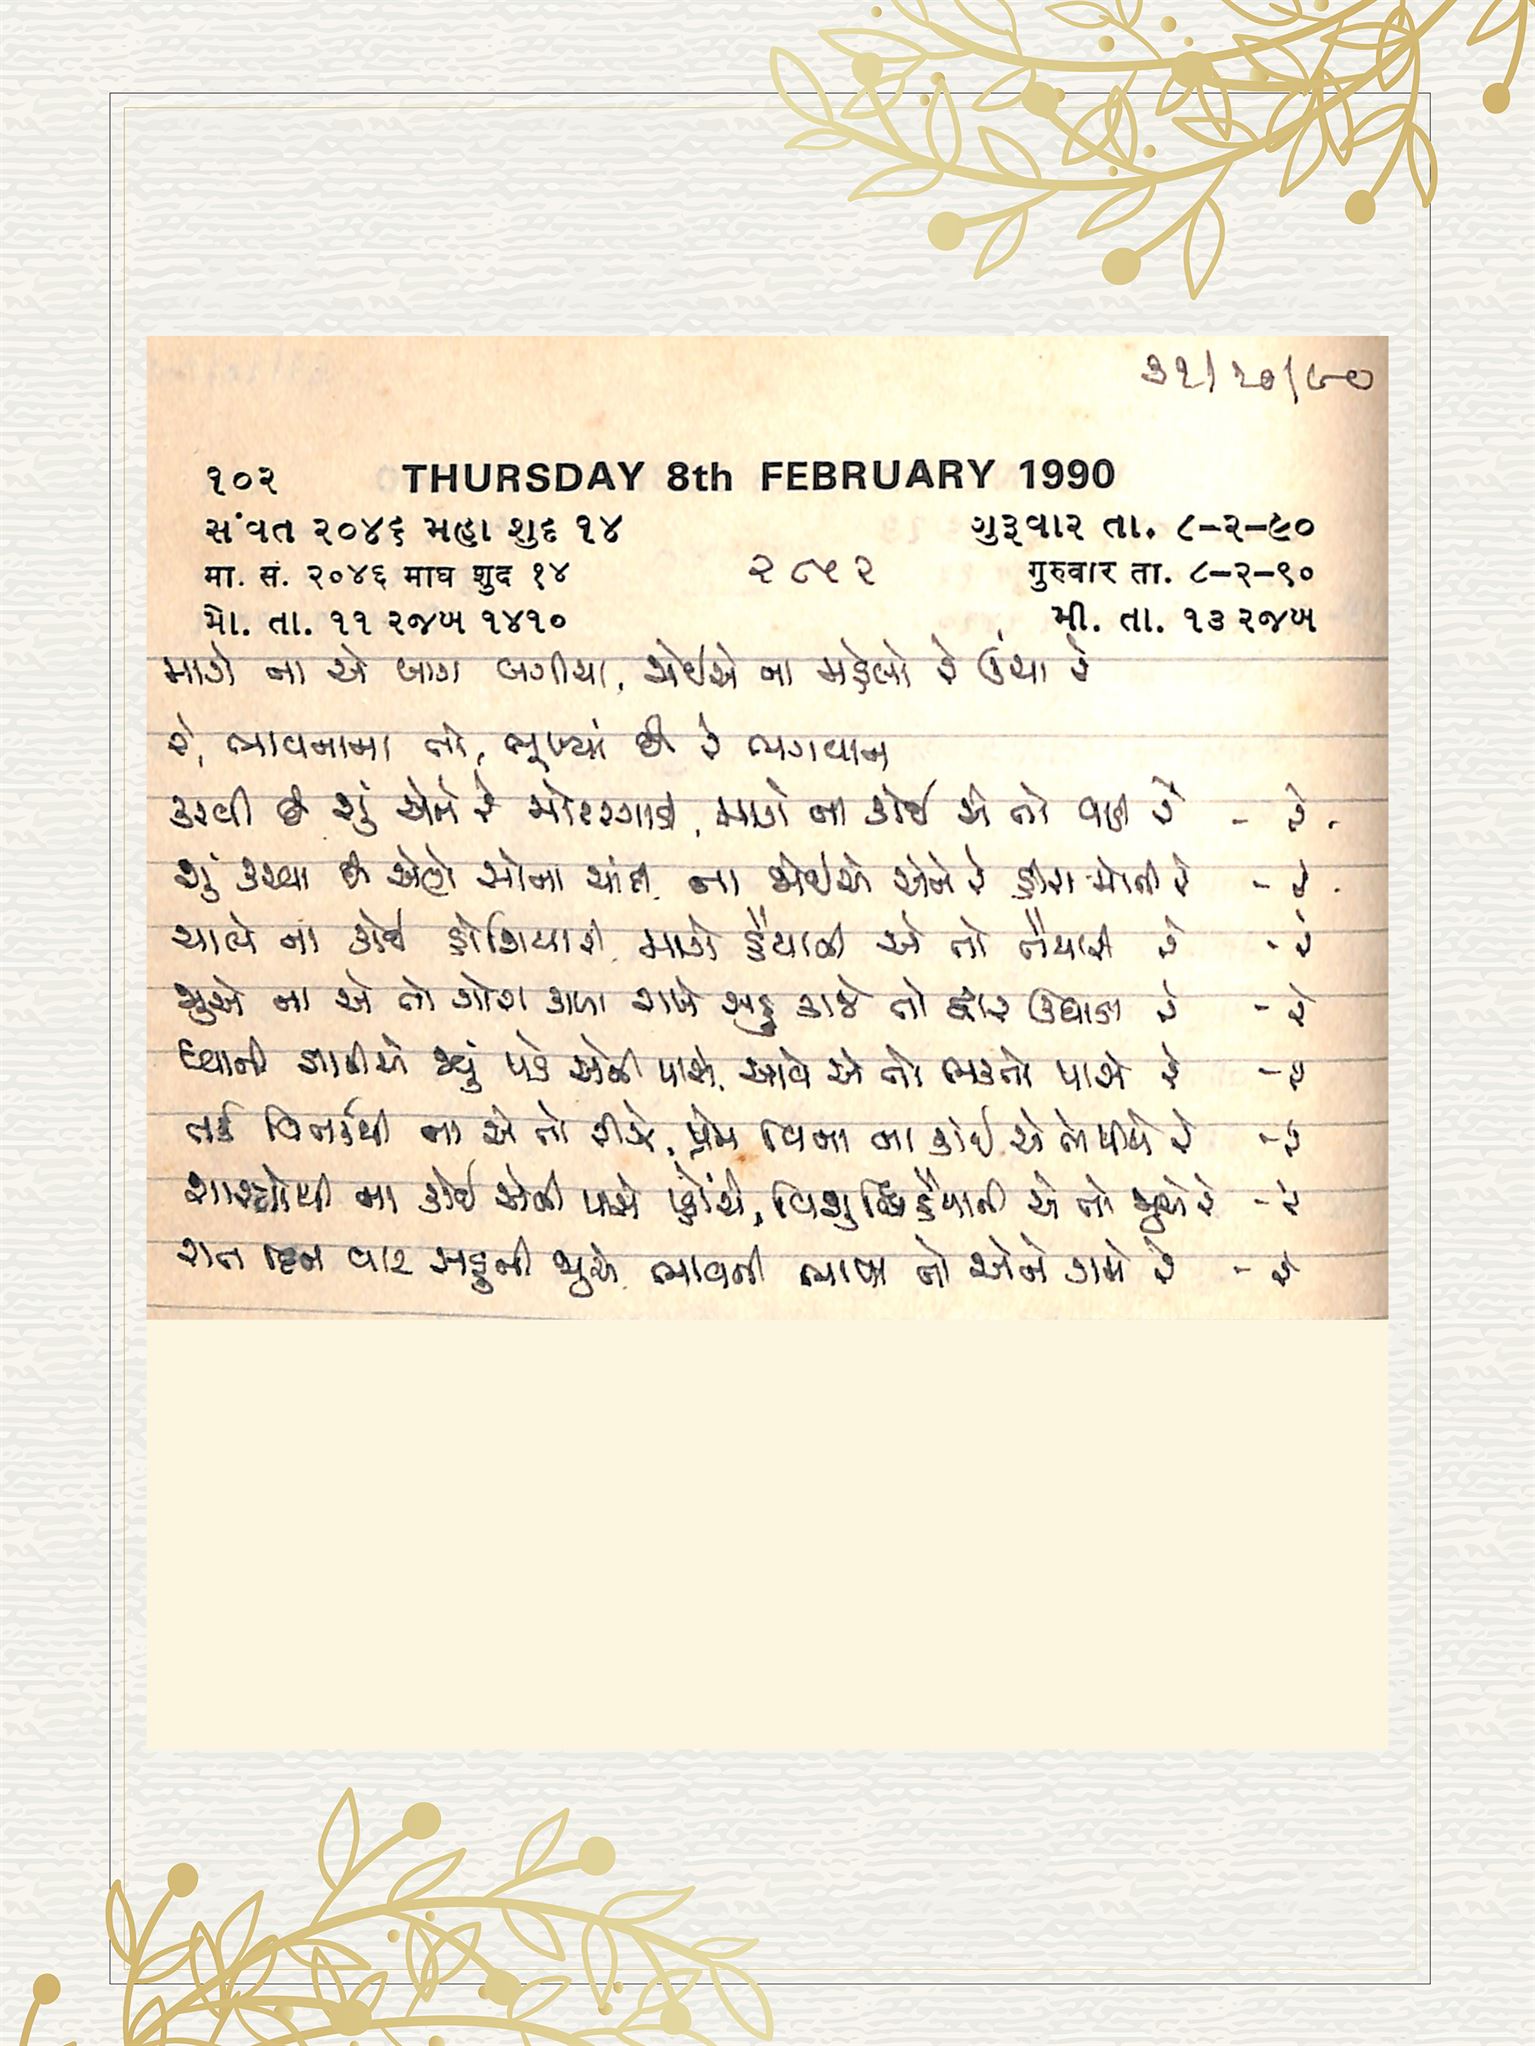 ૩૧/૧૦/૯૦
૧૦૨ THURSDAY 8th FEBRUARY 1990
સંવત ૨૦૪૬ મહા શુદ ૧૪ ગુરૂવાર તા. ૮-૨-૯૦
मा. सं. २०४६ माघ शुद १४ ૨૮૫૨ गुरुवार ता. ८-२-९०
મો. તા. ૧૧ રજબ ૧૪૧૦ મી. તા. ૧૩ રજબ
માગે ના એ બાગ બગીચા, જોઈએ ના મહેલો રે ઉંચા રે
રે, ભાવનામા તો, ભૂખ્યાં છે રે ભગવાન
કરવી છે શું એને રે મોટરગાડી, માગે ના કોઈ એ તો વાડી રે - રે.
શું કરવા છે એણે સોના ચાંદી, ના જોઈએ એને રે હીરા મોતી રે - રે.
ચાલે ના કોઈ હોશિયારી, માગે હૈયાની એ તો તૈયારી રે - રે
જુએ ના એ તો ગોરા કાળા રાખે સહુ કાજે તો દ્વાર ઉઘાડા રે - રે
ધ્યાની જ્ઞાનીએ જવું પડે એની પાસે, આવે એ તો ભક્તો પાસે રે - રે
તર્ક વિતર્કથી ના એ તો રીઝે, પ્રેમ વિના ના કોઈ એ તો પીયે રે - રે
શાસ્ત્રોથી ના કોઈ એની પાસે પ્હોંચે, વિશુદ્ધિ હૈયાની એ તો જુએ રે - રે
રાત દિન વાટ સહુની જુએ, ભાવની ભાષા તો એને ગમે રે - રે